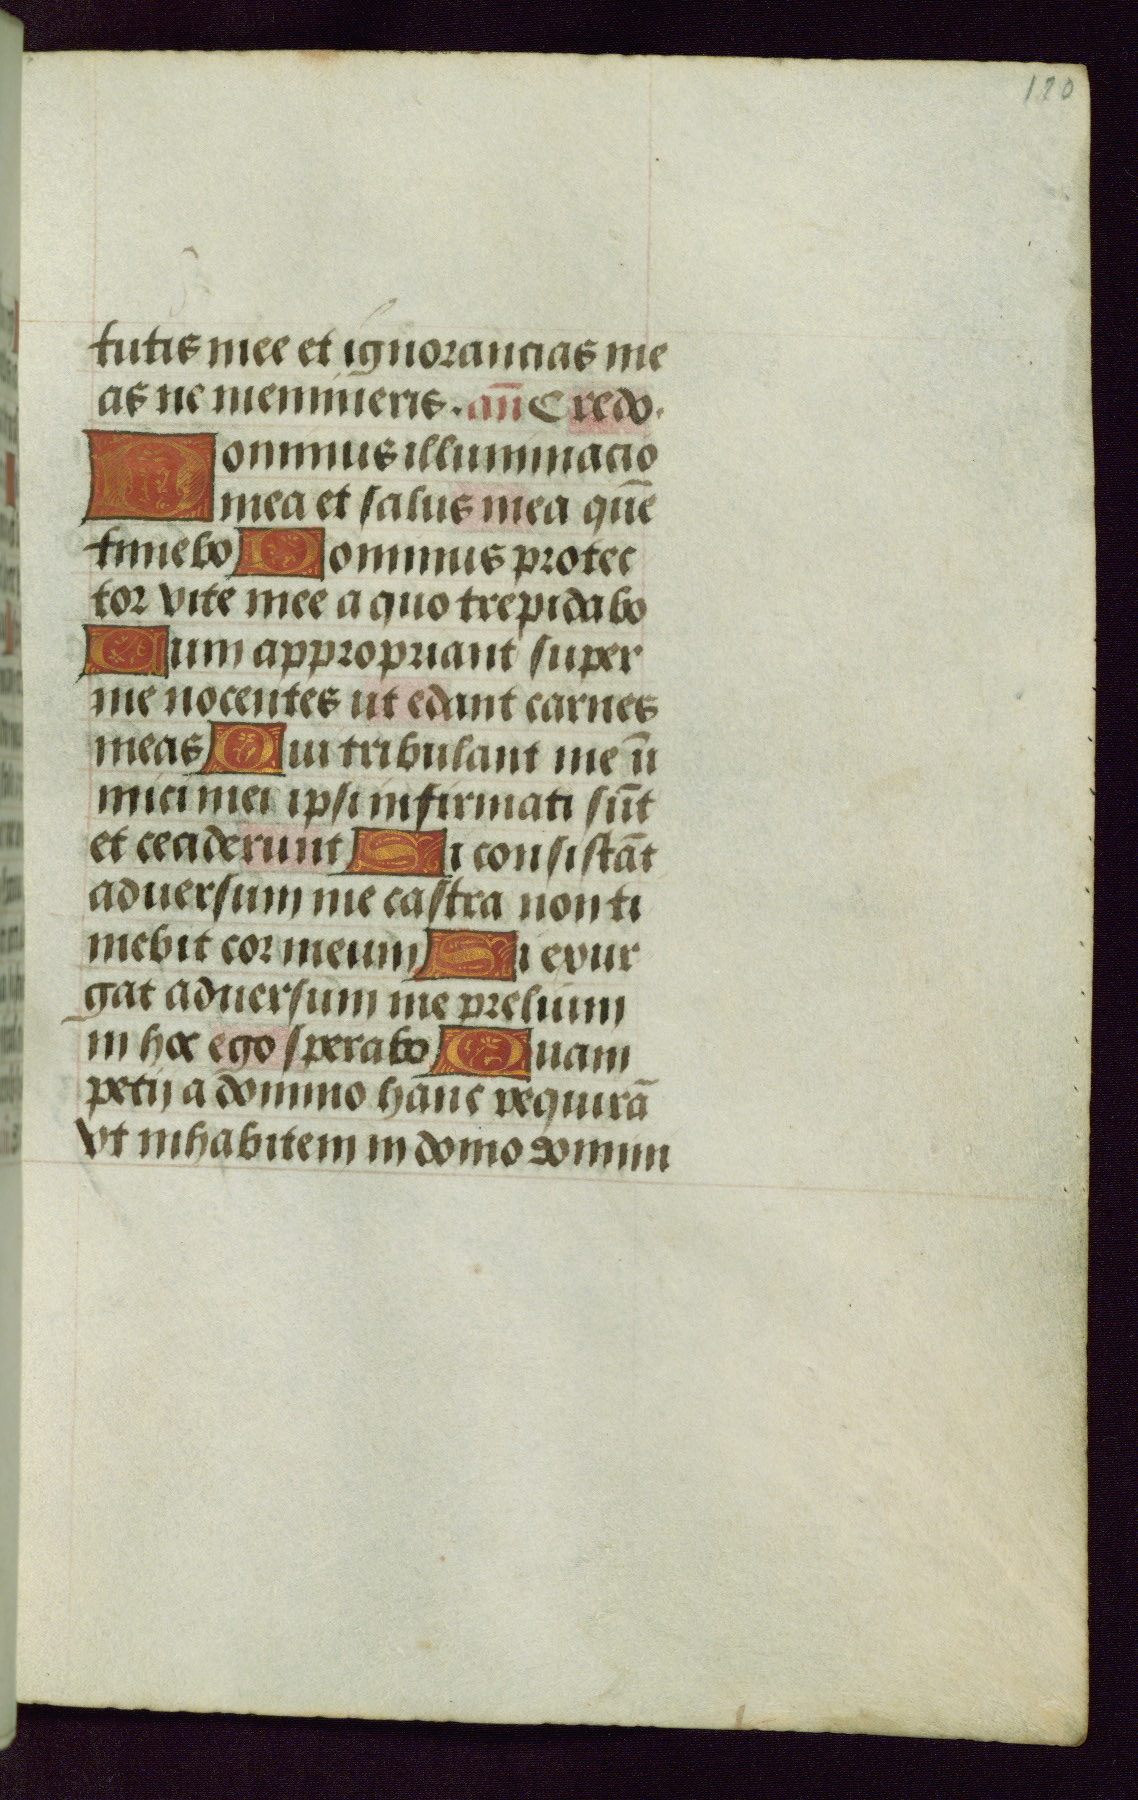 120
tutis mee et ignorancias me
as ne memineris. an̄ Credo.
Dominus illuminacio
mea et salus mea quē
timebo Dominus protec
tor vite mee a quo trepidabo
Cum appropriant super
me nocentes ut edant carnes
meas Qui tribulant me īn
imici mei ipsi infirmati sūt
et ceciderunt Si consistāt
adversum me castra non ti
mebit cor meum Si exur
gat adversum me prelium
in hoc ego sperabo Quam
petij a domino hanc requirā
Vt inhabitem in domo domini